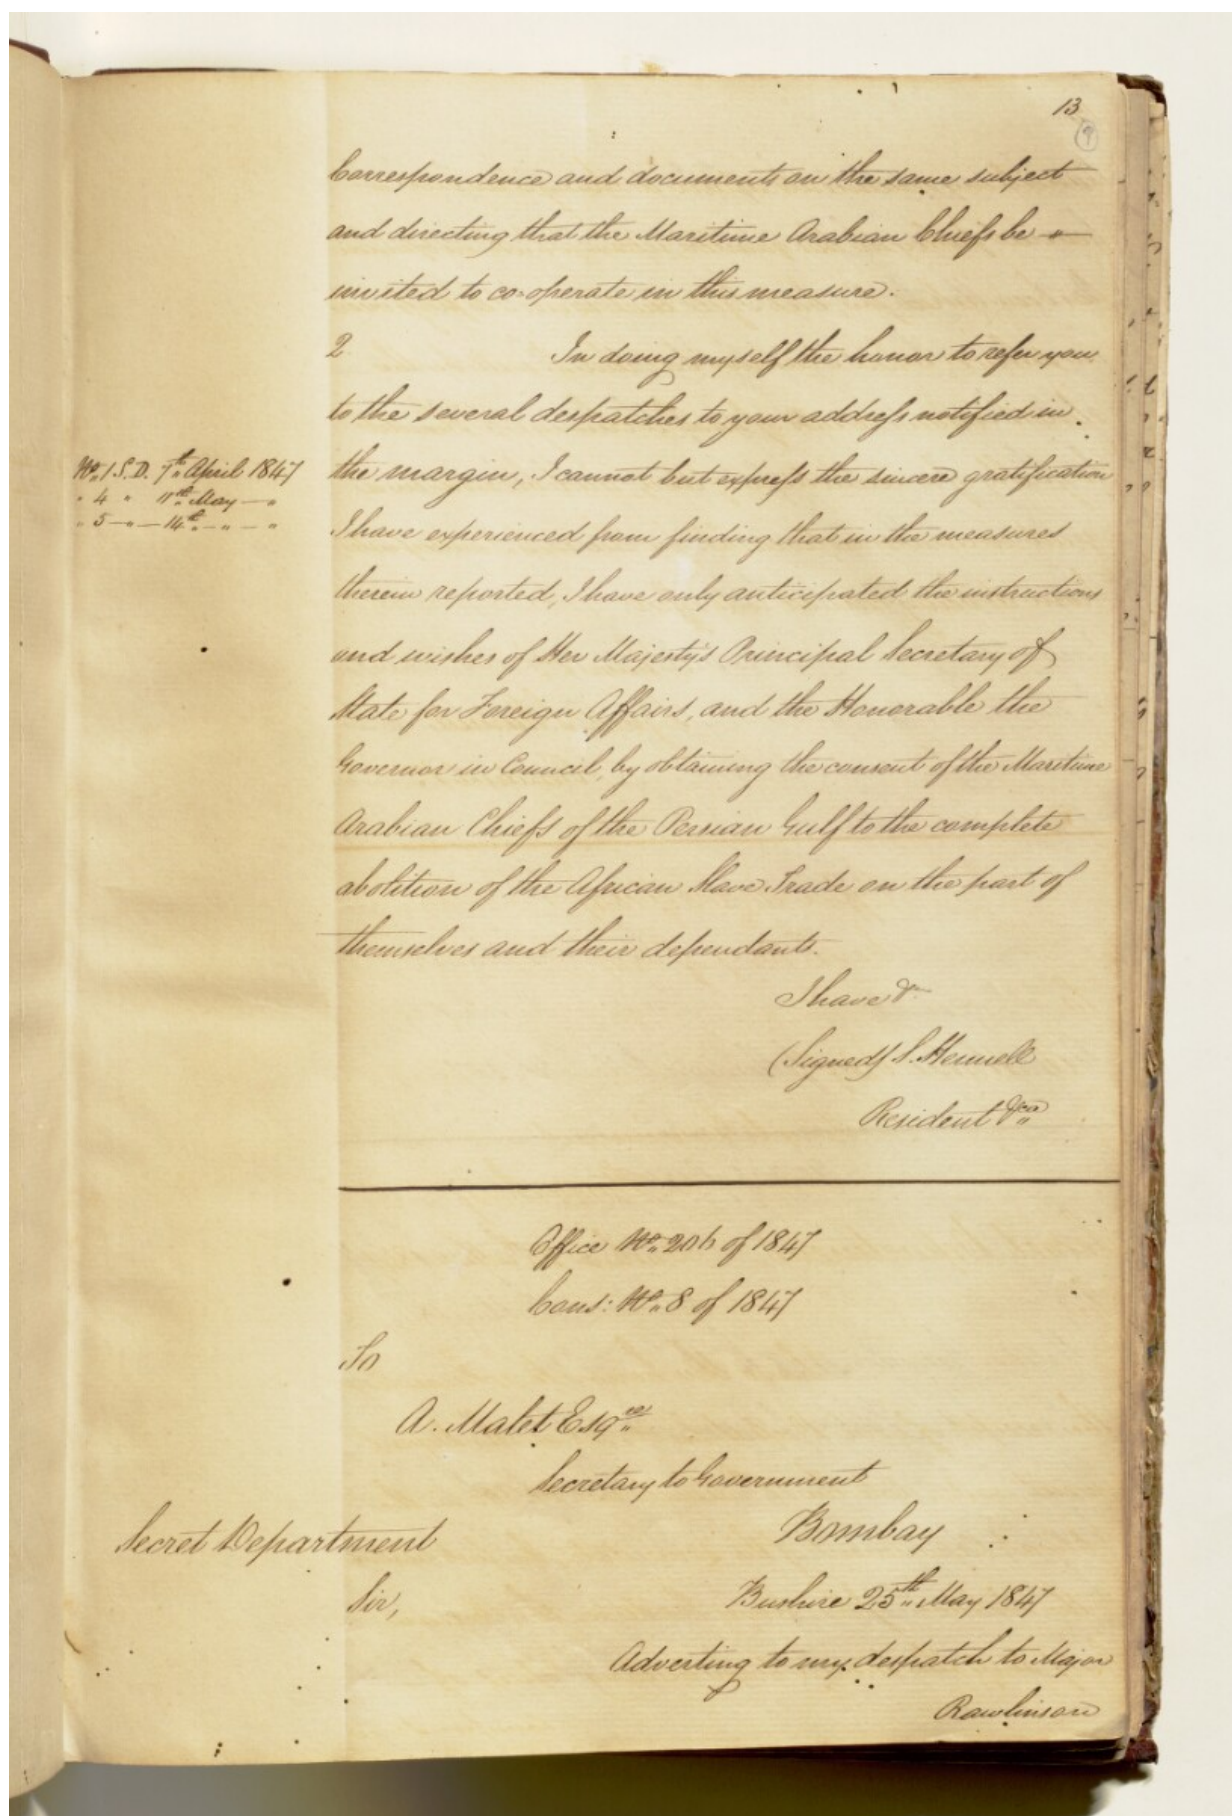 13
9
Correspondence and documents on the same subject
and directing that the Maritime Arabian Chiefs be
invited to co=operate in this measure.
2 In doing myself the honor to refer you
to the several despatches to your address notified in
No. 1 S.D. 7th April 1847
" 4 " 11th May — "
" 5 — " — 14th — " — "
the margin, I cannot but express the sincere gratification
I have experienced from finding that in the measures
therein reported, I have only anticipated the instructions
and wishes of Her Majesty's Principal Secretary of
State for Foreign Affairs, and the Honorable the
Governor in Council, by obtaining the consent of the Maritime
Arabian Chiefs of the Persian Gulf to the complete
abolition of the African Slave Trade on the part of
themselves and their dependants.
I have &c
(Signed) S. Hennell
Resident &ca
Office No. 206 of 1847
Cons: No. 8 of 1847
To
A. Malet Esqre
Secretary to Government
Bombay
Secret Department
Sir, Bushire 25th May 1847
Adverting to my despatch to Major
Rawlinson